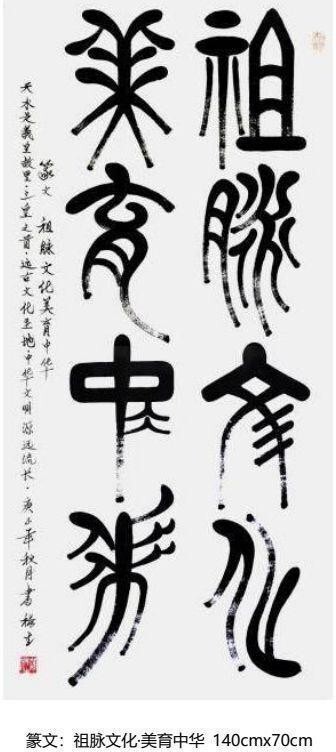 祖脉文化
美育中华
篆文 祖脉文化美育中华
天水是羲皇故里·三皇之首·远古文化圣地·中华文明源远流长·庚子年秋月书
篆文：祖脉文化·美育中华 140cmx70cm